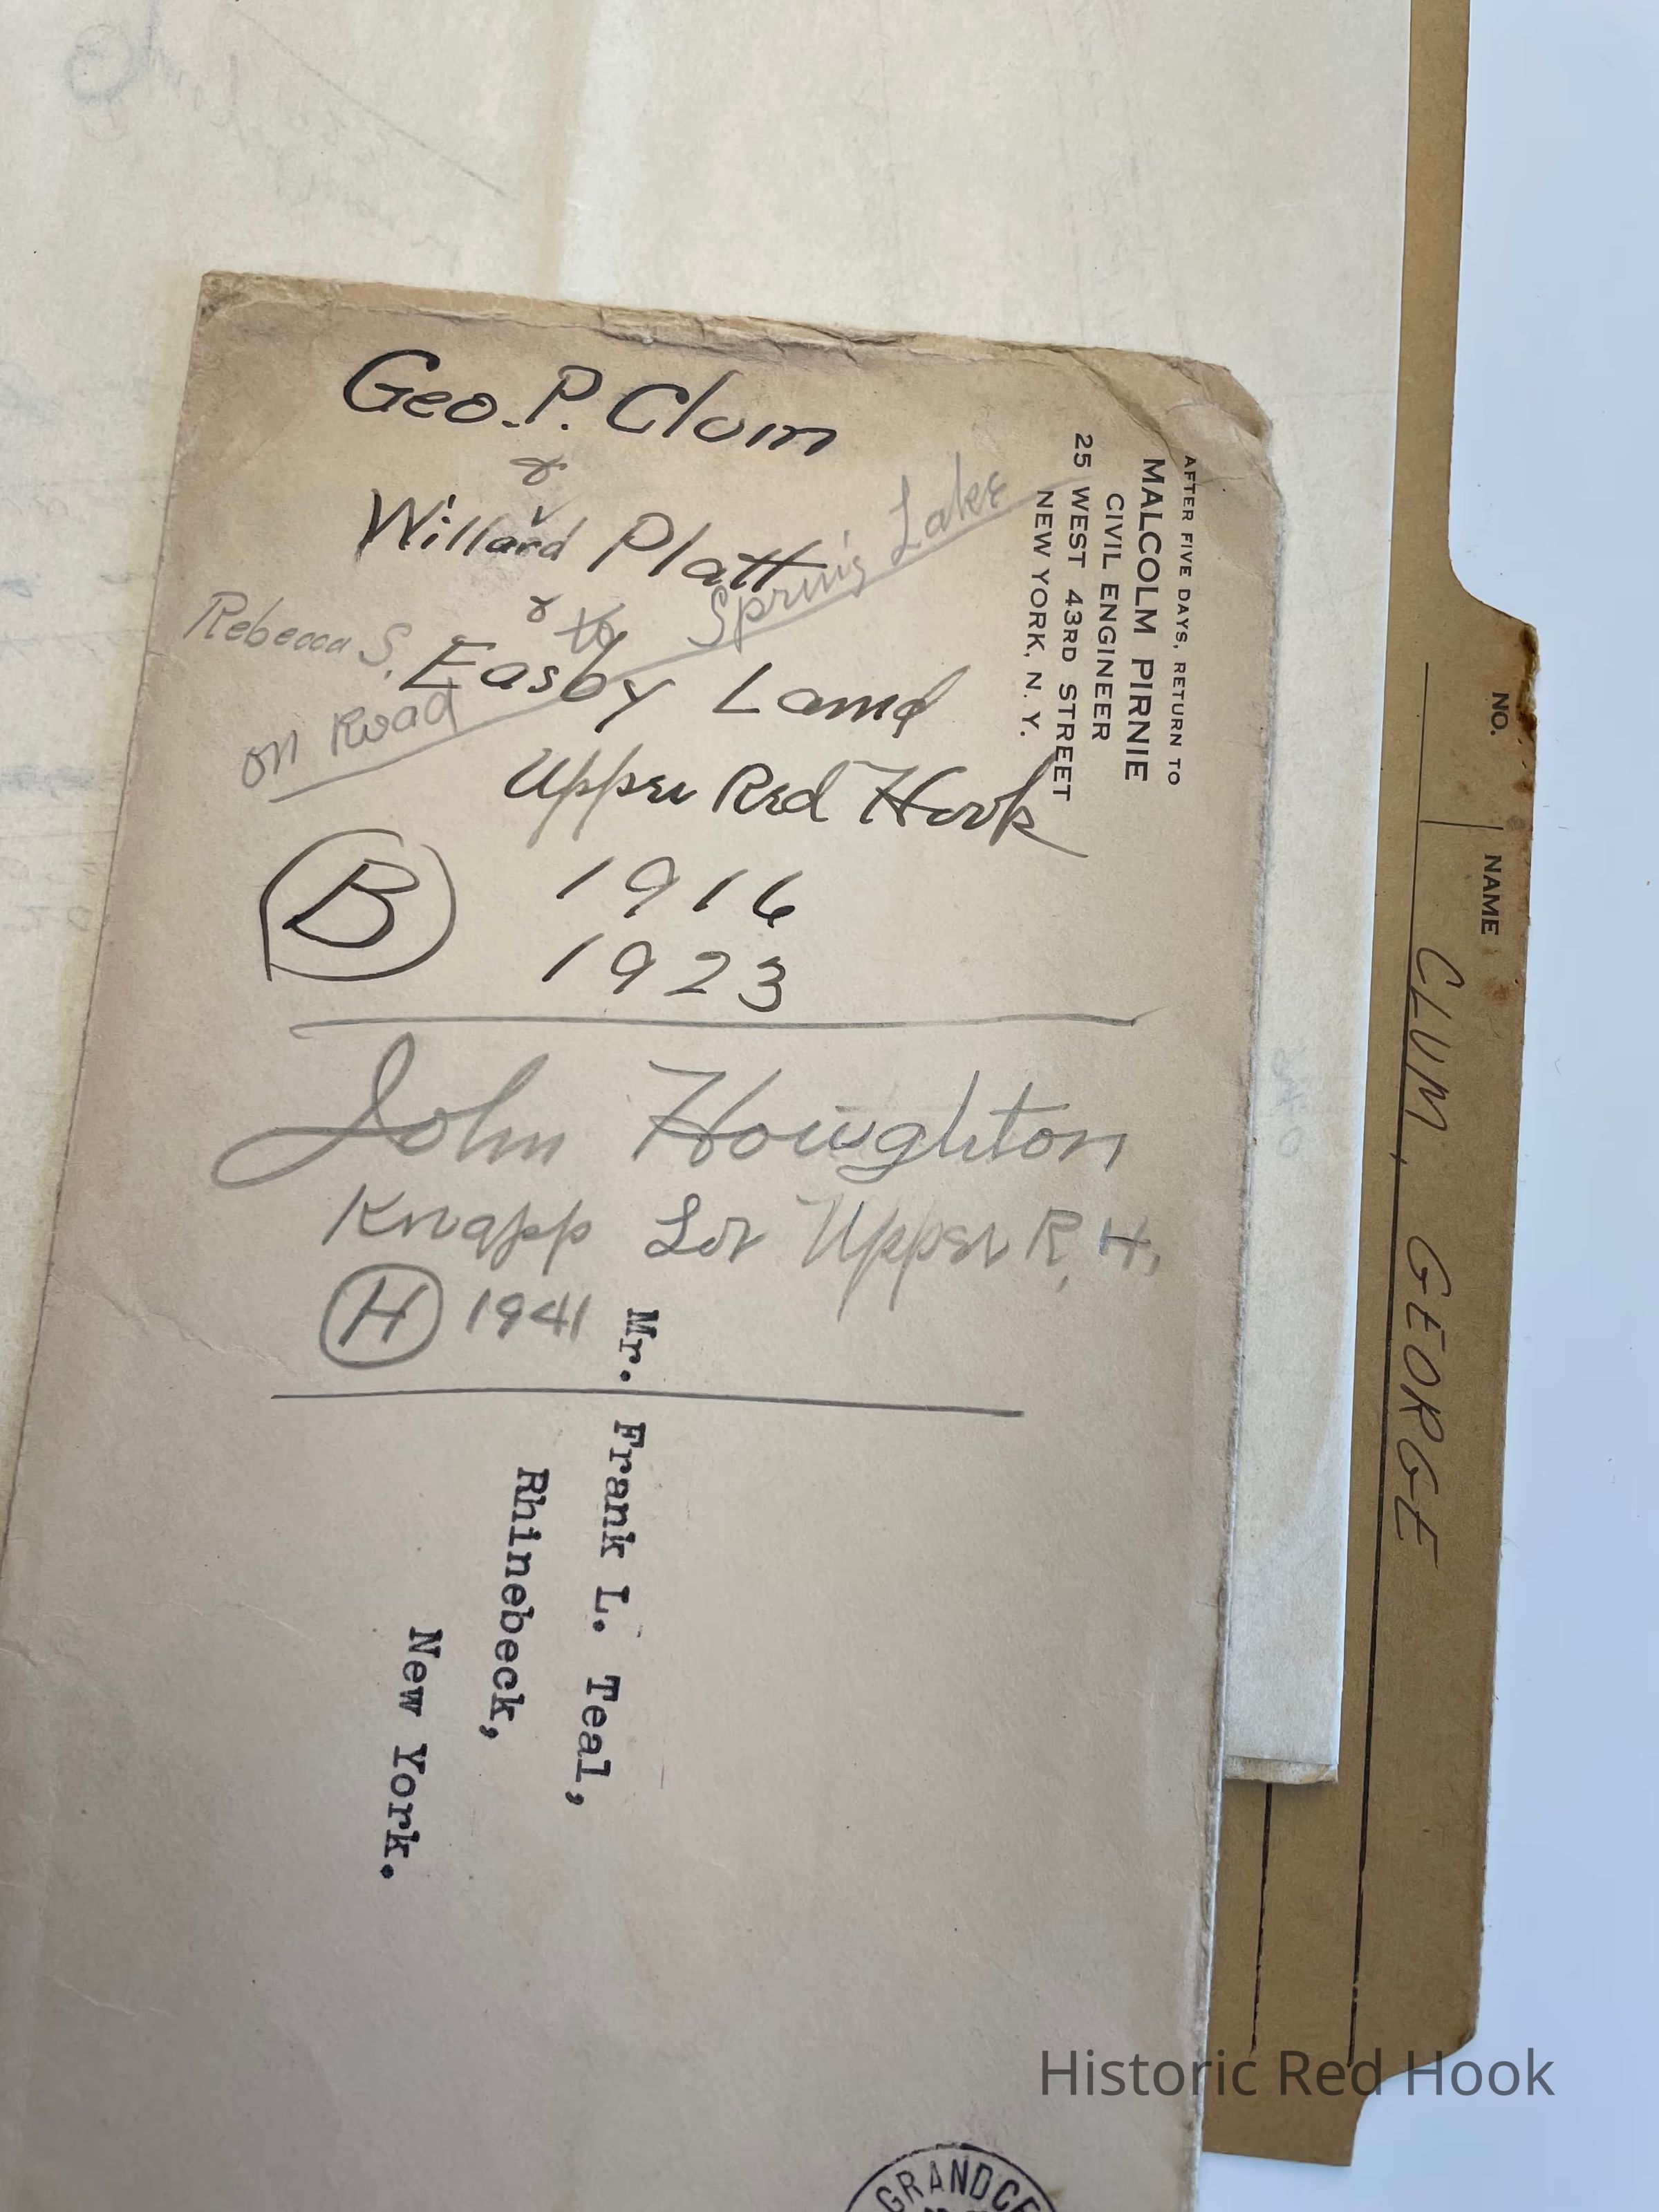 Geo. P. Clum
&
Willard Platt
&
Rebecca S. Easby Land
on Road to Spring Lake
Upper Red Hook
B 1916
1923
John Houghton
Knapp Lot Upper R. H.
H 1941
AFTER FIVE DAYS, RETURN TO
MALCOLM PIRNIE
CIVIL ENGINEER
25 WEST 43RD STREET
NEW YORK, N. Y.
Mr. Frank L. Teal,
Rhinebeck,
New York.
NO. NAME
CLUM, GEORGE
GRAND CE
Historic Red Hook